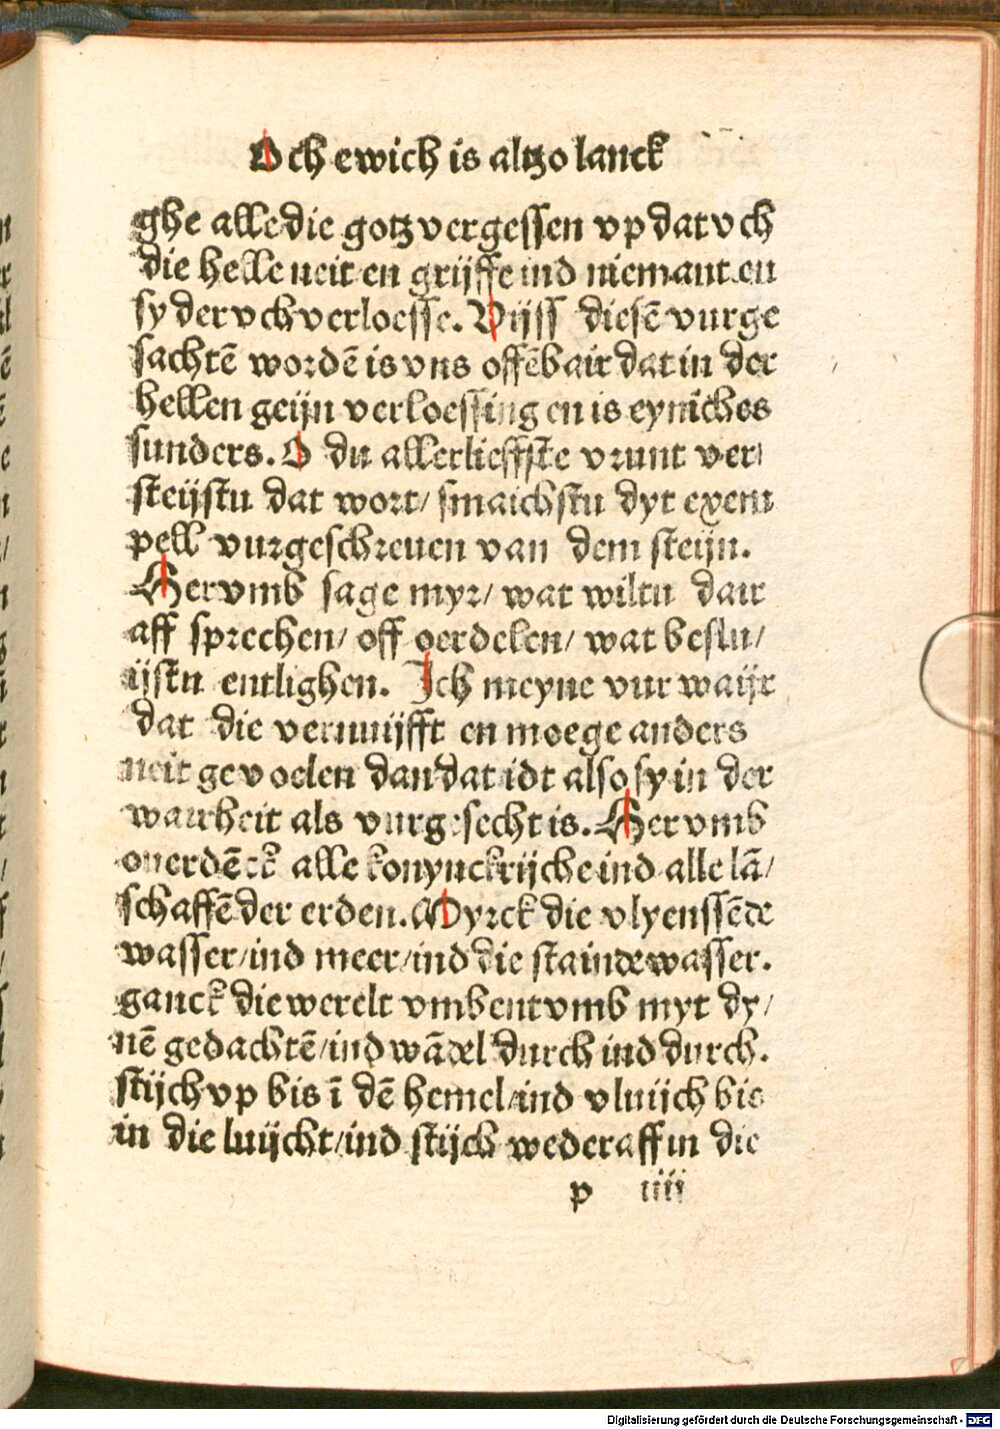 Och ewich is altzo lanck
ghe alle die gotz vergessen vp dat vch
die helle neit en grijffe ind niemant en
sy der vch verloesse. Vijss diesē vurge
sachtē wordē is vns offēbair dat in der
hellen geijn verloessing en is eyniches
sunders. O du allerlieffste vrunt ver
steijstu dat wort/ smaichstu dyt exem
pell vurgeschreuen van dem steijn.
Hervmb sage myr/ wat wiltu dair
aff sprechen/ off oerdelen/ wat beslu/
ijstu entlighen. Ich meyne vur waijr
dat die vernuijfft en moege anders
neit gevoelen dan dat idt also sy in der
wairheit als vurgesecht is. Hervmb
ouerdēck alle konynckrijche ind alle lā/
schaffē der erden. Myrck die vlyenssēde
wasser/ind meer/ind die stainde wasser.
ganck die werelt vmbentvmb myt dy/
nē gedachtē/ind wādel durch ind durch.
stijch vp bis ī dē hemel/ind vluijch bis
in die luijcht/ind stijch weder aff in die
p iiii
Digitalisierung gefördert durch die Deutsche Forschungsgemeinschaft - DFG